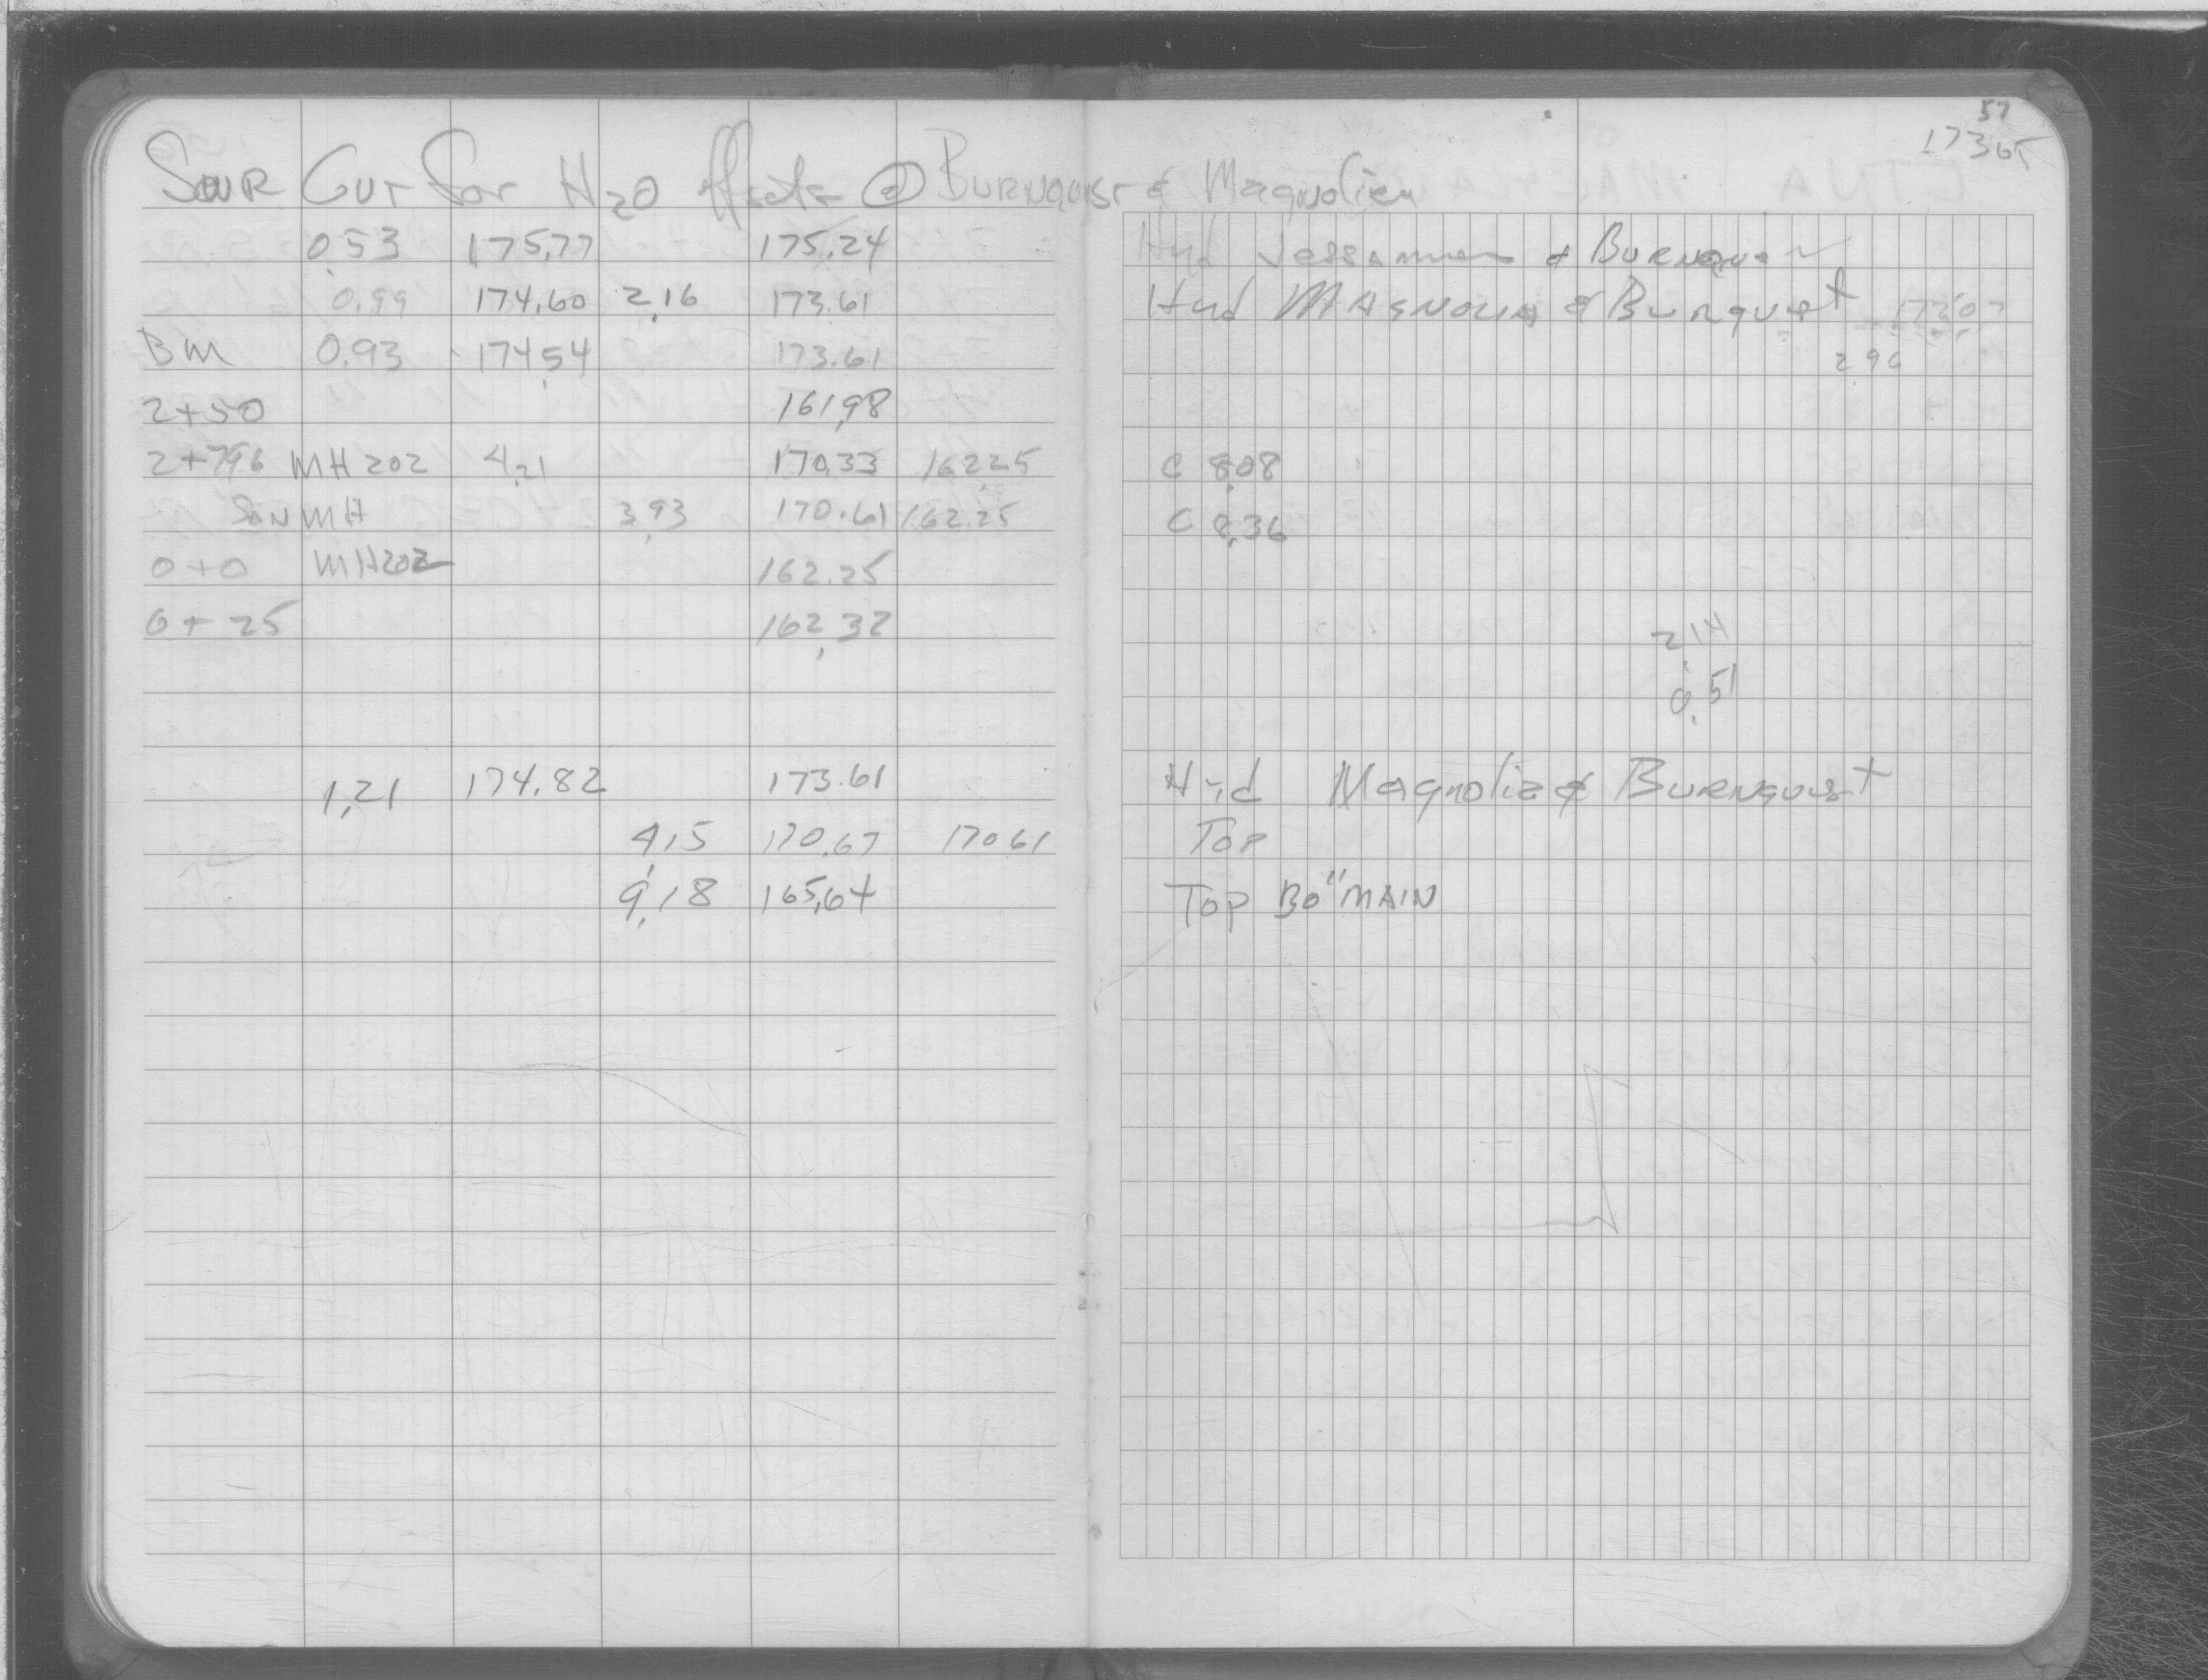 57
17365
Sewer Cut for H2O offsets @ Burnquist & Magnolia
0.53 175.77 175.24 Hyd Jessamine & Burnquist
0.99 174.60 2.16 173.61 Hyd Magnolia & Burnquist 173.07
BM 0.93 174.54 173.61 2.96
2+50 161.98
2+796 MH 202 4.21 170.33 162.25 C 8.08
San MH 3.93 170.61 162.25 C 8.36
0+0 MH202 162.25
0+25 162.32 2.14
0.51
1.21 174.82 173.61 Hyd Magnolia & Burnquist
4.15 170.67 170 61 Top
9.18 165.64 Top 30" MAIN